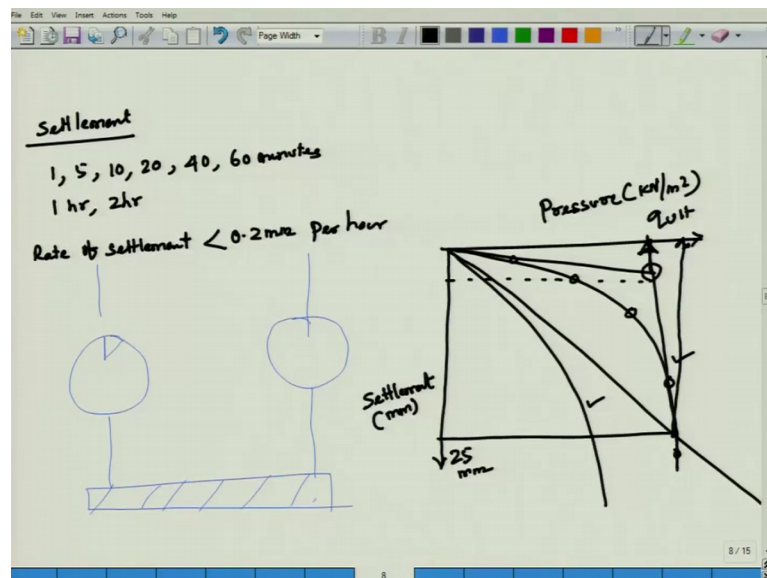 File Edit View Insert Actions Tools Help
Page Width
B I
Settlement
1, 5, 10, 20, 40, 60 minutes
1 hr, 2hr
Rate of settlement < 0.2mm per hour
Pressure (KN/m2)
qult
Settlement
(mm)
25
mm
8 / 15
8